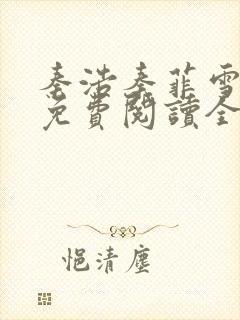 秦浩秦菲雪
免費閱讀全
悒清塵